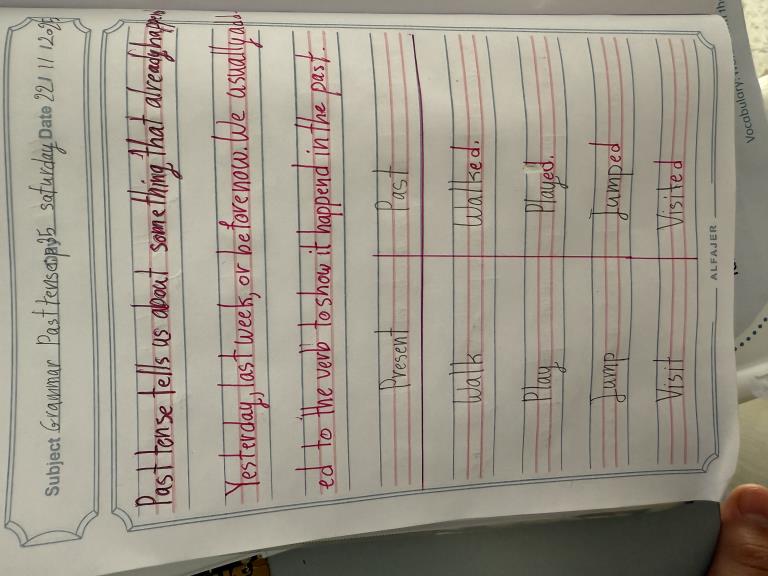 Subject Grammar Past tense Day Saturday Date 22/11/2025
Past tense tells us about something that already happen
Yesterday, last week, or before now. We usually add
ed to the verb to show it happend in the past.
Present Past
Walk Walked.
Play Played.
Jump Jumped
Visit Visited
ALFAJER
Vocabulary: